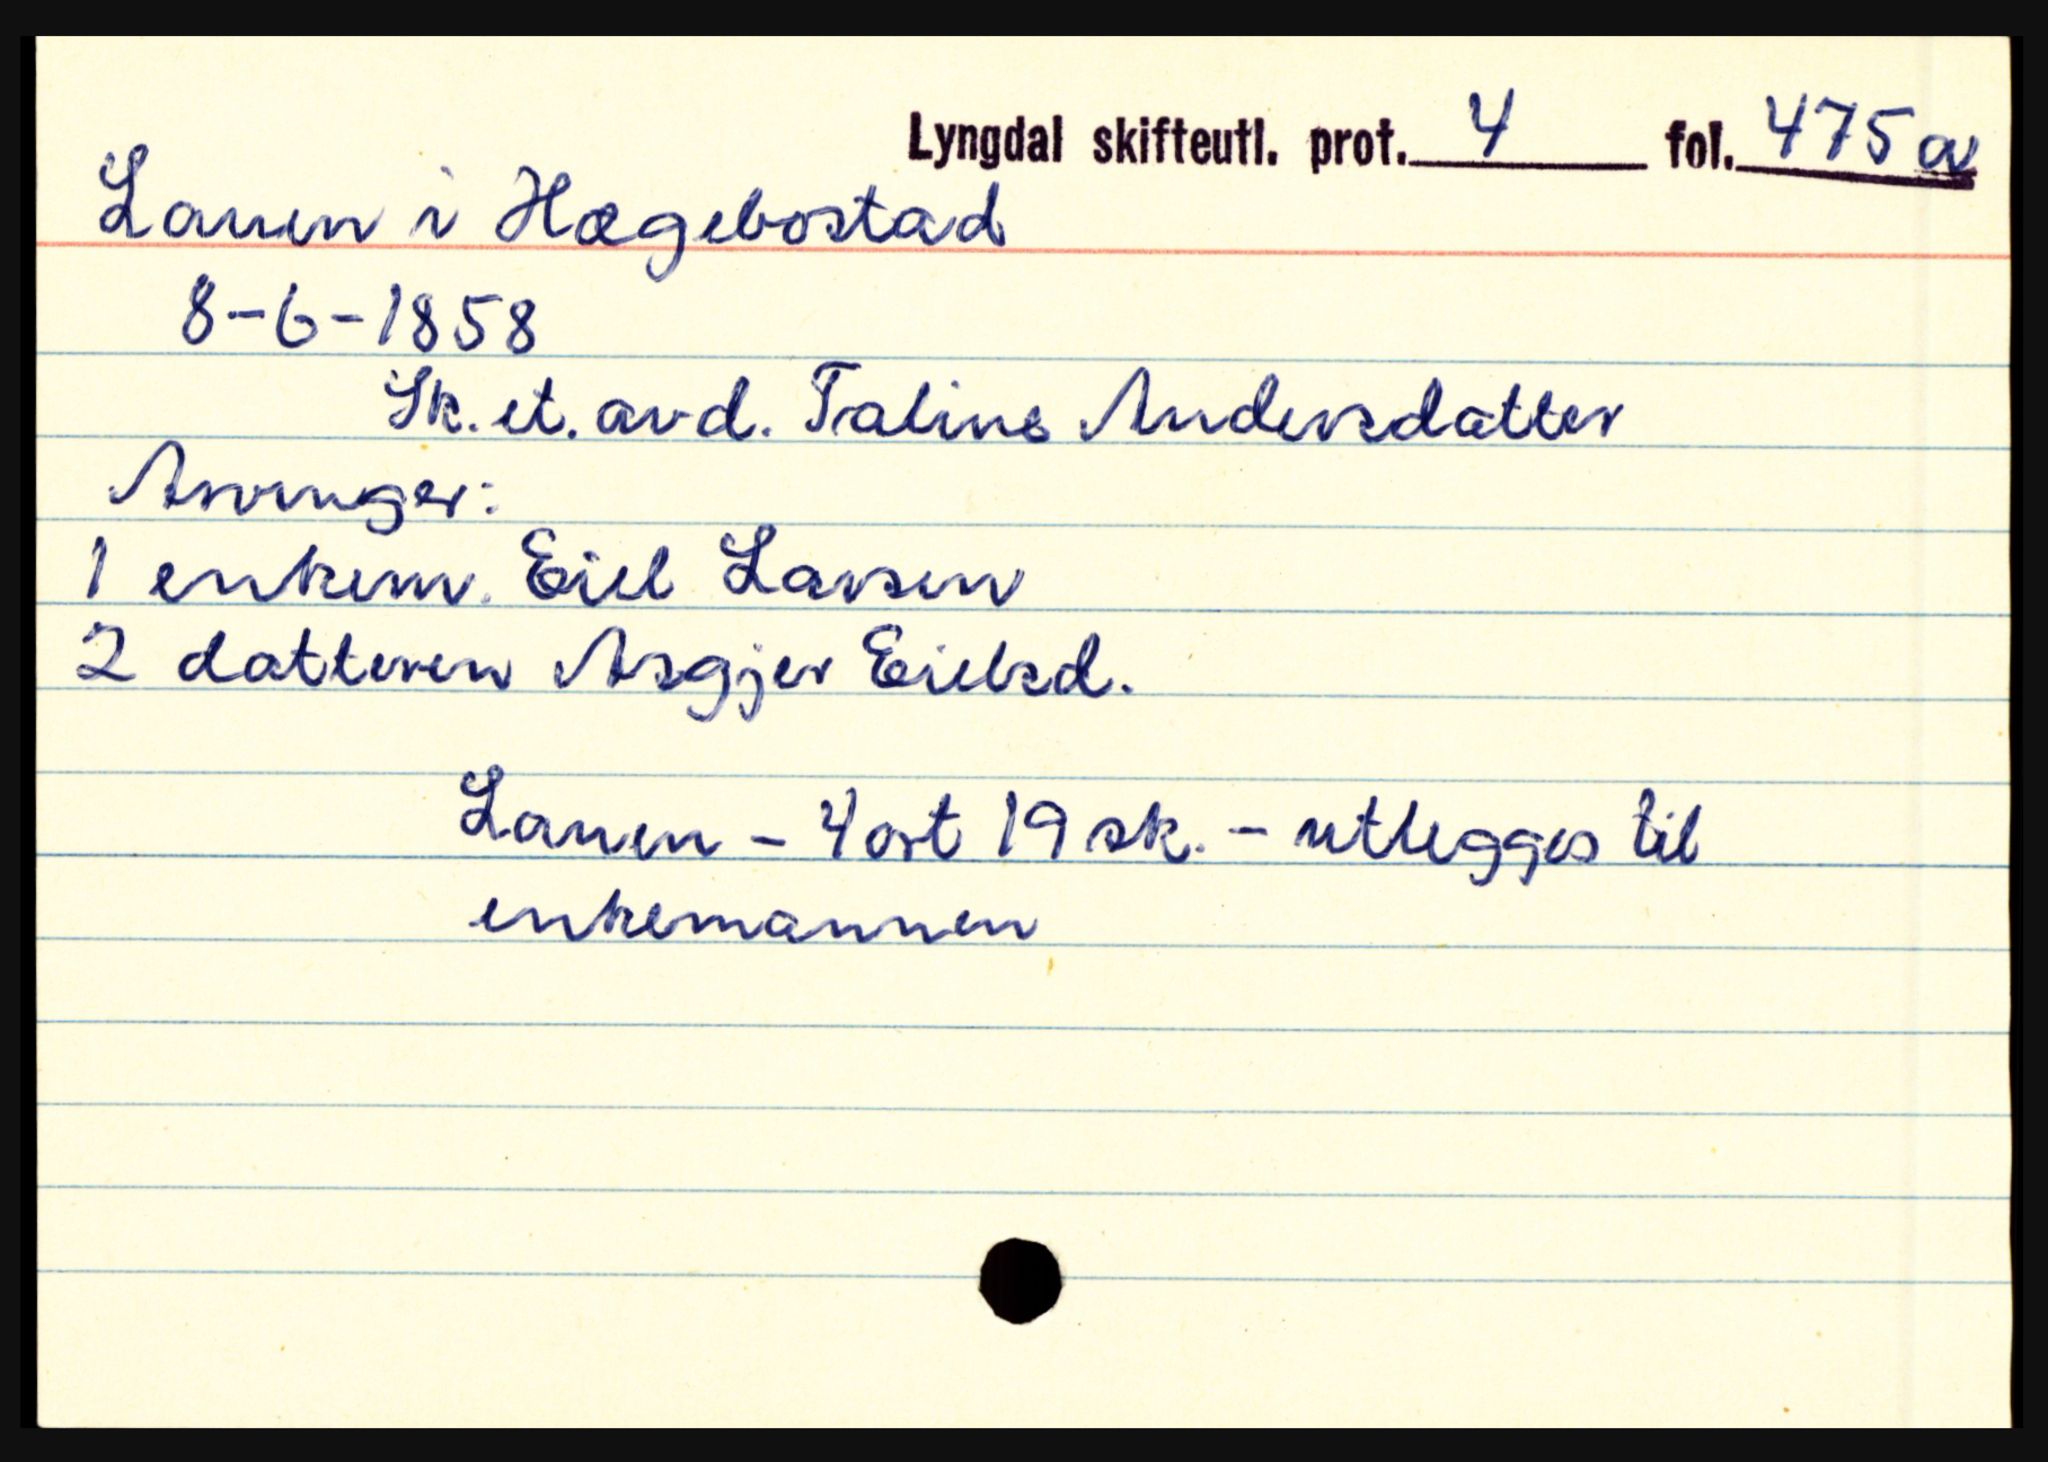 Lyngdal skifteutl. prot. 4 fol. 475a
Lauen i Hægebostad
8-6-1858
Sk. et. avd. Taline Andersdatter
Arvinger:
1 enkem. Eiel Larsen
2 datteren Asgjer Eielsd.
Lauen - 4 ort 19 sk. - utlegges til
enkemannen